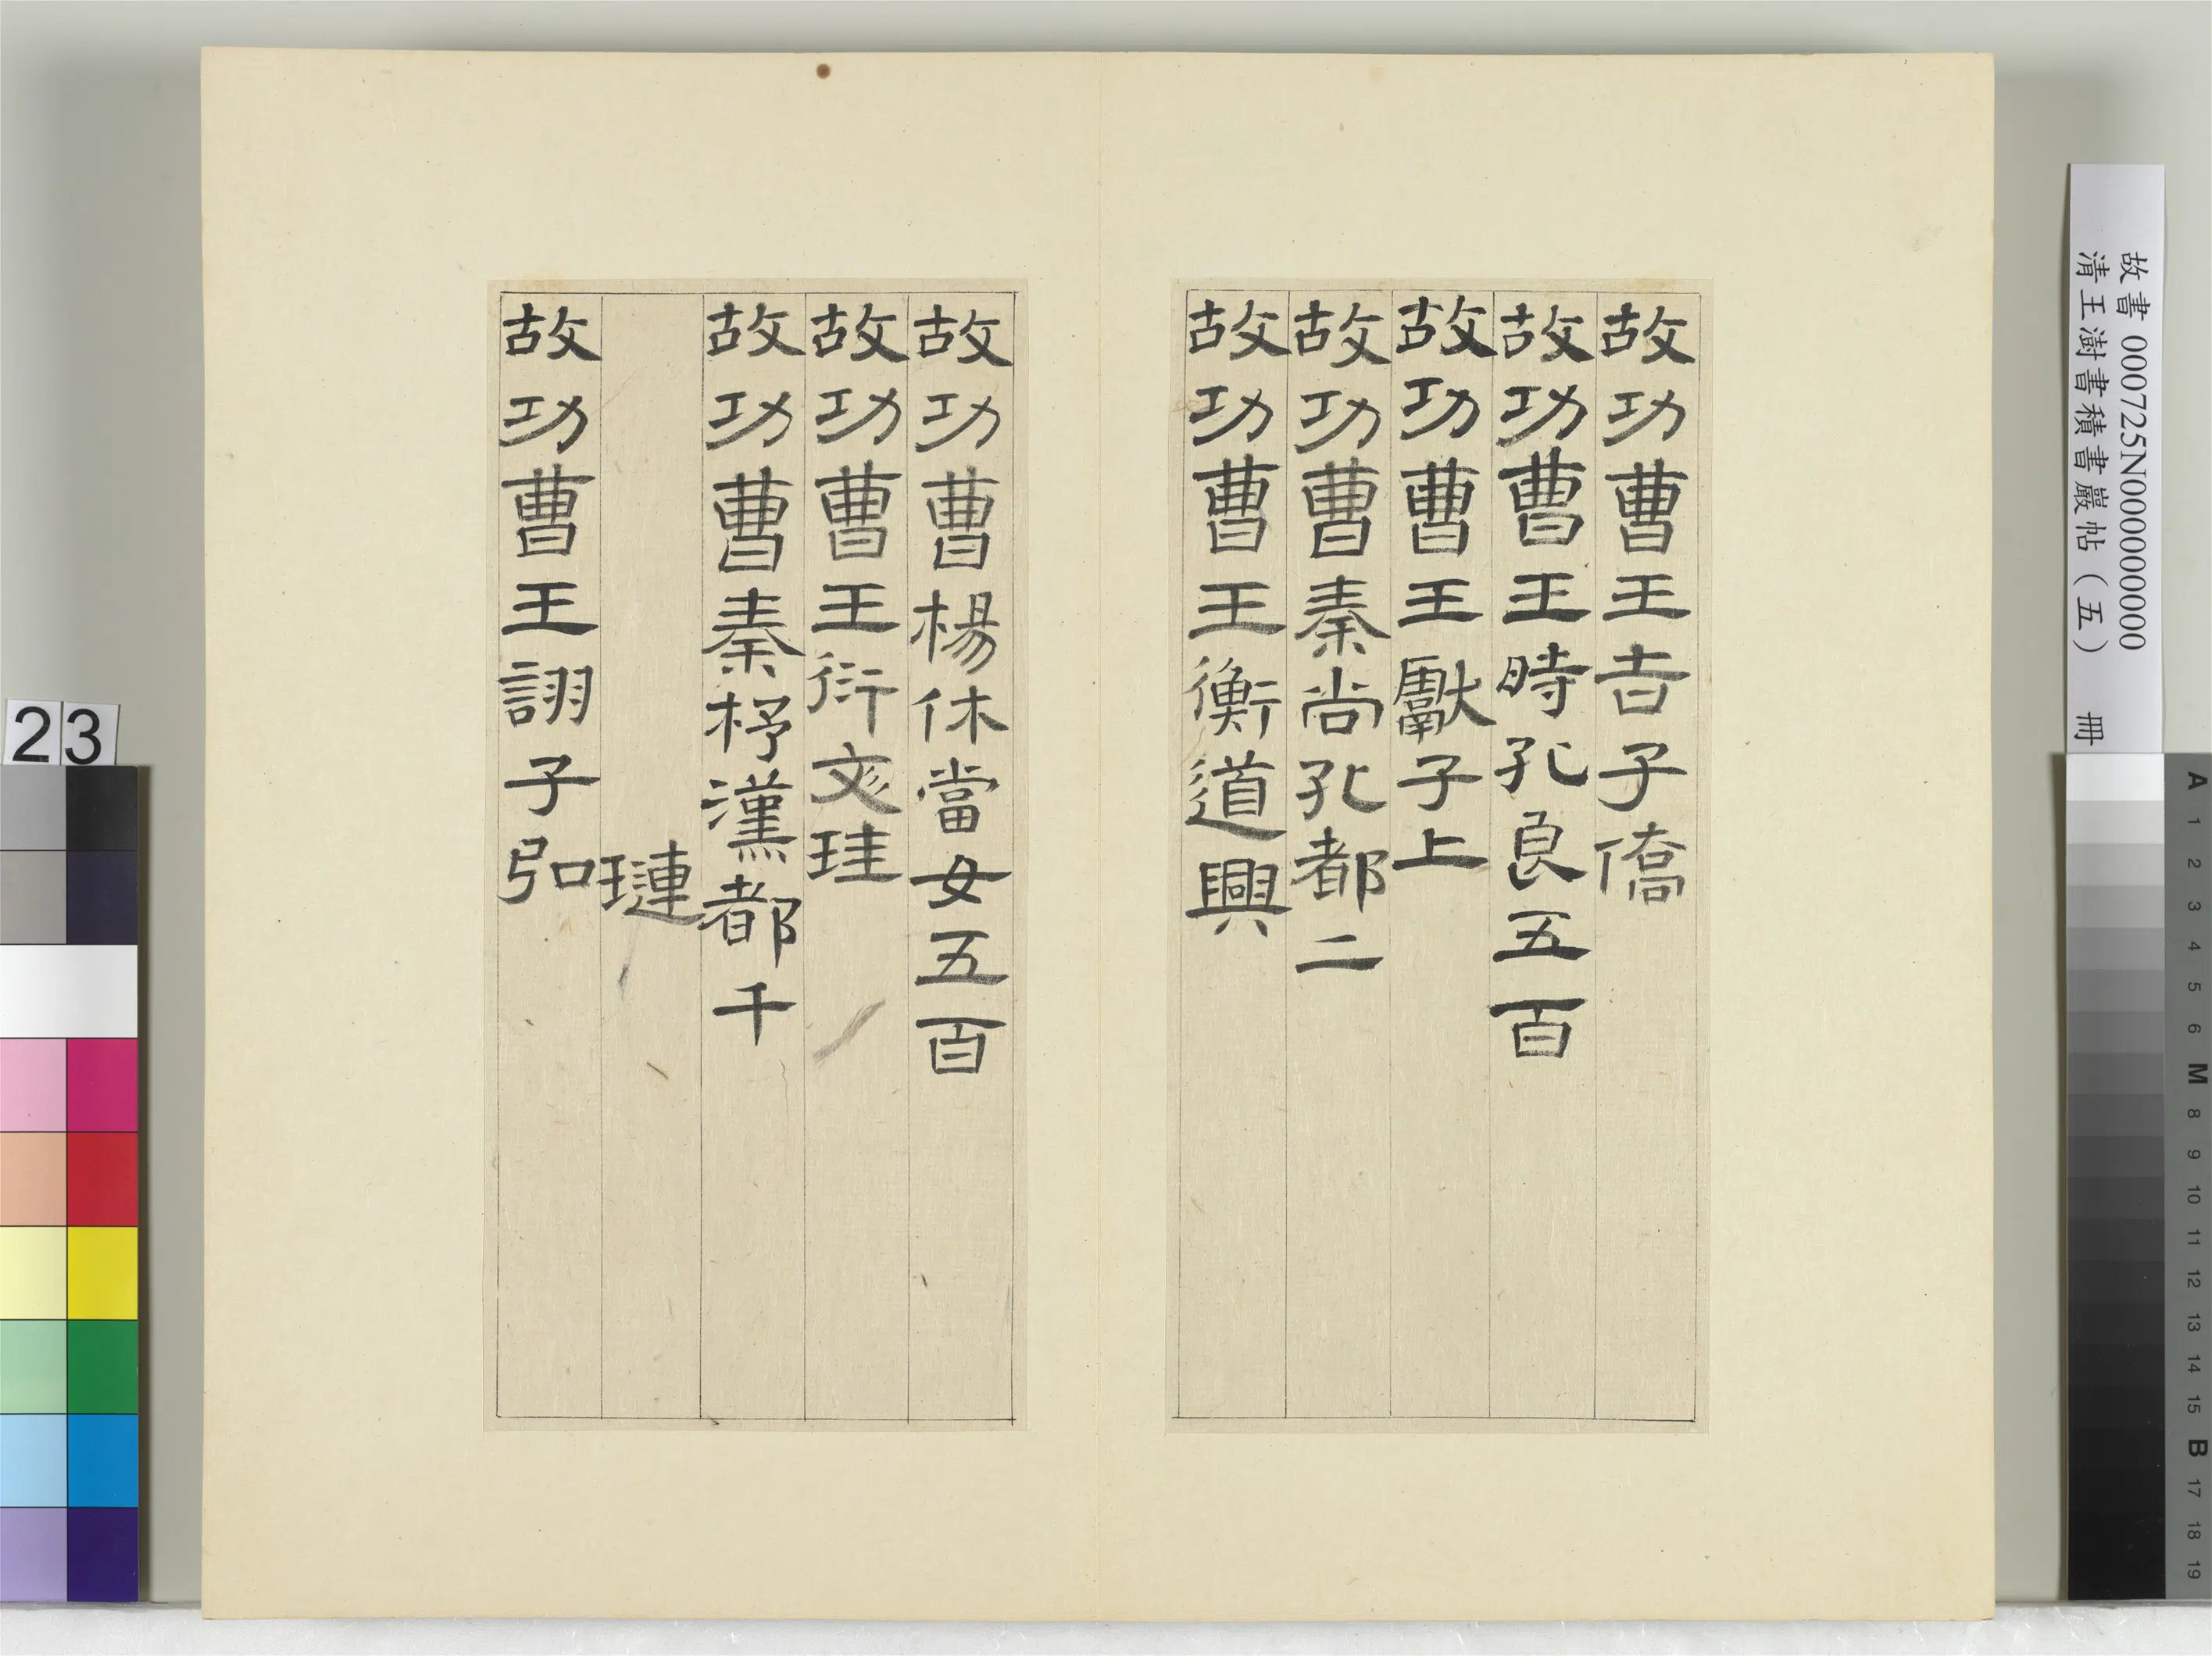 故功曹王吉子僑
故功曹王時孔良五百
故功曹王獻子上
故功曹秦尚孔都二
故功曹王衡道興
故功曹楊休當女五百
故功曹王衍文珪
故功曹秦杼漢都千
璉
故功曹王詡子弘
故書 000725N000000000
清王澍書積書巖帖(五) 冊
23
A 1 2 3 4 5 6 M 8 9 10 11 12 13 14 15 B 17 18 19